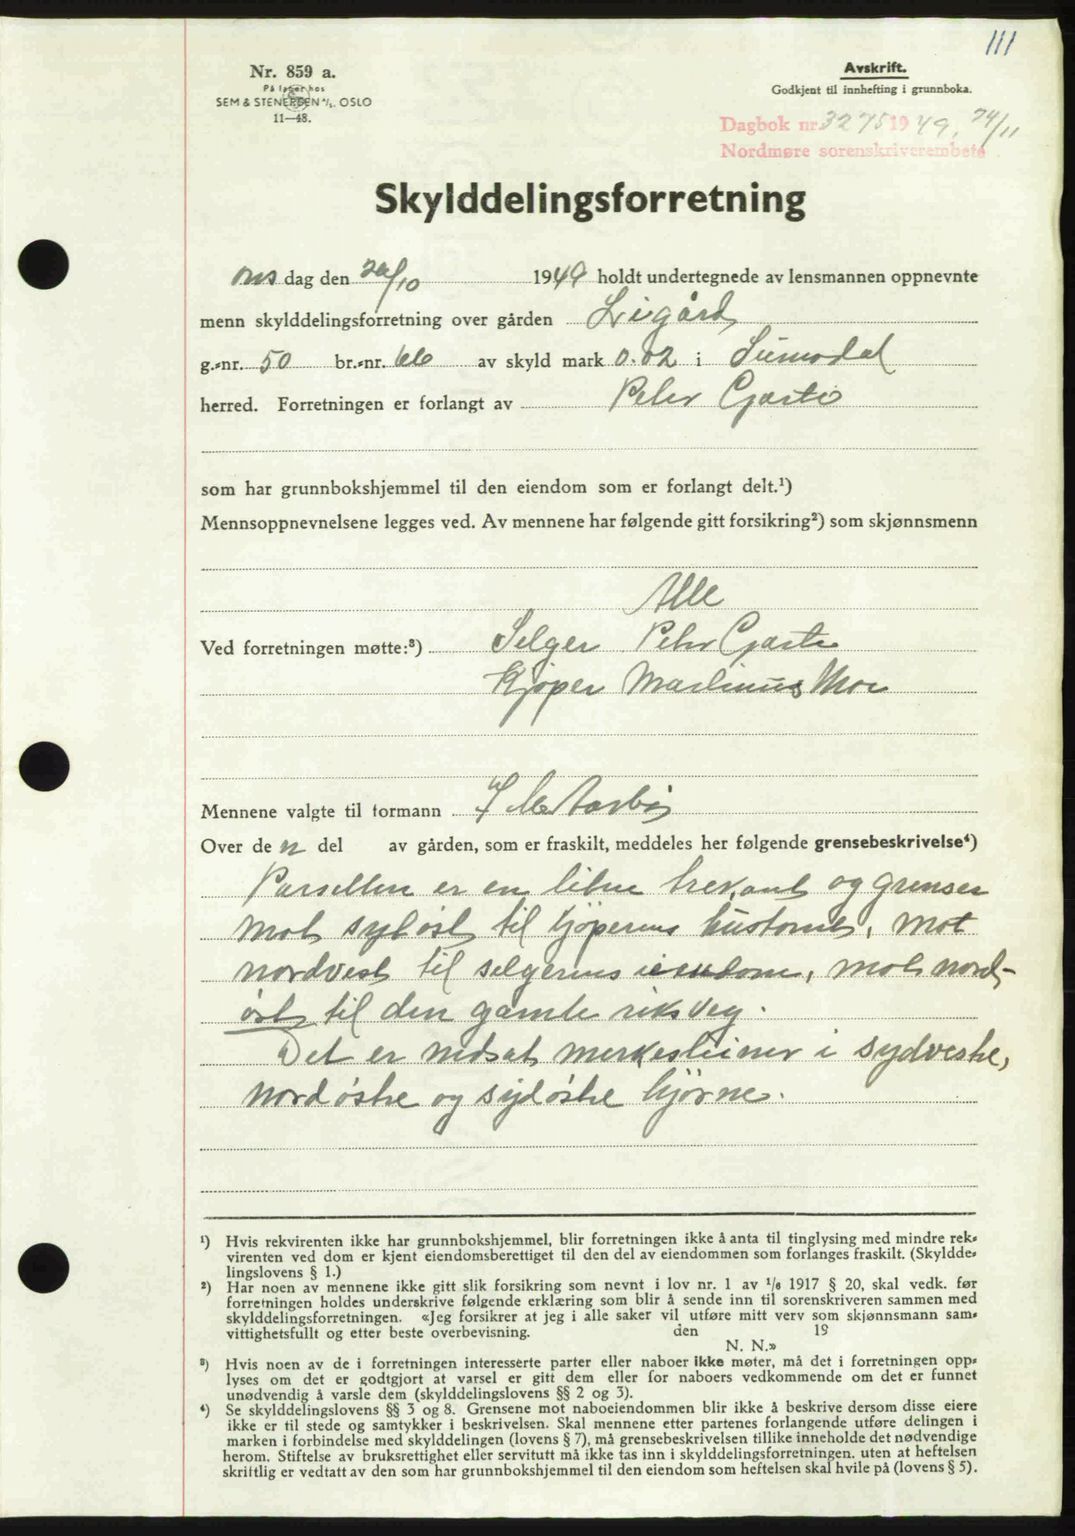 111
Nr. 859 a.
På lager hos
SEM & STENERSEN A/S. OSLO
11—48.
Avskrift.
Godkjent til innhefting i grunnboka.
Dagbok nr. 3275 1949, 24/11
Nordmøre sorenskriverembete
Skylddelingsforretning
ons dag den 26/10 1949 holdt undertegnede av lensmannen oppnevnte
menn skylddelingsforretning over gården Ligård
g.-nr. 50 br.-nr. 66 av skyld mark 0.02 i
herred. Forretningen er forlangt av Peter Gjørtø
som har grunnbokshjemmel til den eiendom som er forlangt delt.¹)
Mennsoppnevnelsene legges ved. Av mennene har følgende gitt forsikring²) som skjønnsmenn
Alle
Ved forretningen møtte:³) Selger Peter
Kjøper Martinus Moe
Mennene valgte til formann
Over de n del av gården, som er fraskilt, meddeles her følgende grensebeskrivelse⁴)
Parsellen er en liten trekant og grenser
mot sydøst til kjøperens hustomt, mot
nordvest til selgerens eiendom, mot nord-
øst til den gamle riksveg.
Det er nedsat merkesteiner i sydvestre,
nordøstre og sydøstre hjørne.
¹) Hvis rekvirenten ikke har grunnbokshjemmel, blir forretningen ikke å anta til tinglysing med mindre rek-
virenten ved dom er kjent eiendomsberettiget til den del av eiendommen som forlanges fraskilt. (Skyldde-
lingslovens § 1.)
²) Har noen av mennene ikke gitt slik forsikring som nevnt i lov nr. 1 av 1/6 1917 § 20, skal vedk. før
forretningen holdes underskrive følgende erklæring som blir å sende inn til sorenskriveren sammen med
skylddelingsforretningen. «Jeg forsikrer at jeg i alle saker vil utføre mitt verv som skjønnsmann sam-
vittighetsfullt og etter beste overbevisning. den 19
N. N.»
³) Hvis noen av de i forretningen interesserte parter eller naboer ikke møter, må det i forretningen opp-
lyses om det er godtgjort at varsel er gitt dem eller for naboers vedkommende om det er funnet
unødvendig å varsle dem (skylddelingslovens §§ 2 og 3).
⁴) Se skylddelingslovens §§ 3 og 8. Grensene mot naboeiendommen blir ikke å beskrive dersom disse eiere
ikke er til stede og samtykker i beskrivelsen. Skal mennene etter partenes forlangende utføre delingen i
marken i forbindelse med skylddelingen (lovens § 7), må grensebeskrivelsen tillike inneholde det nødvendige
herom. Stiftelse av bruksrettighet eller servitutt må ikke tas inn i skylddelingsforretningen. uten at heftelsen
skriftlig er vedtatt av den som har grunnbokshjemmel til den eiendom som heftelsen skal hvile på (lovens § 5).